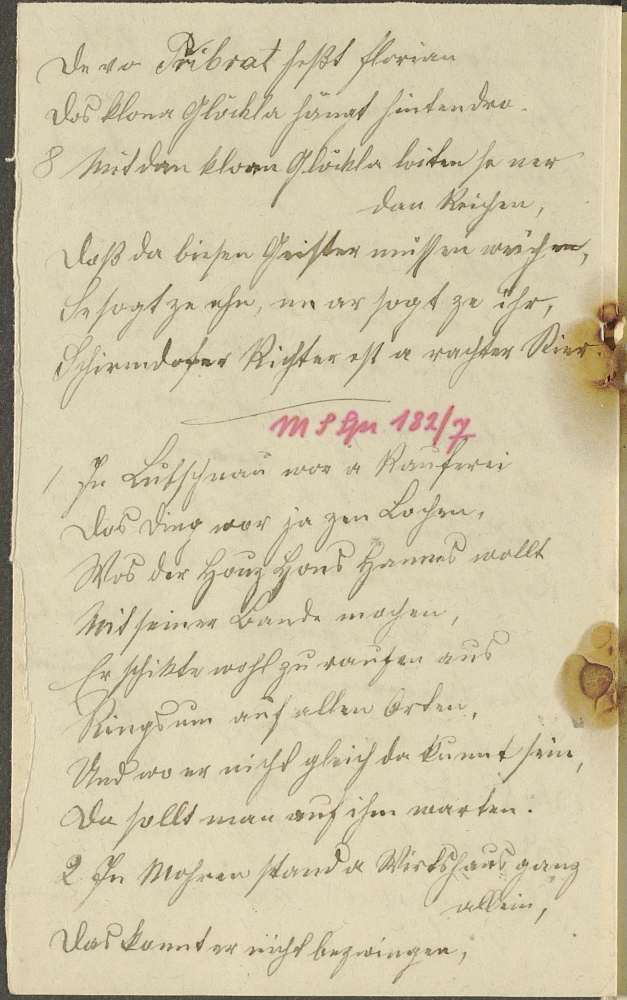 De vo Pribrat heßt Florian
Dos klona Glöckla hängt hintendro.
8 Mit dan kloan Glöckla leiten se ner
dan Reichen,
Daß da biesen Geister müssen weichen,
Se sogt ze ehn, un ar sogt ze ihr,
Schirmdofer Richter est a rachter Stier.
M S Gr. 182/7
1 In Lutschnau wor a Rauferei
Das Ding wor ja zen Lachen,
Wos der Hons Hannes wollt
Mit seiner Bande machen,
Er schikte wohl zu raufen aus
Ringsum auf allen Orten,
Und wo er nicht gleich da kunnt sein,
Da sollt man auf ihm warten.
2 In Mohren stand a Wirtshaus ganz
allein,
Das konnt er nicht bezwingen,